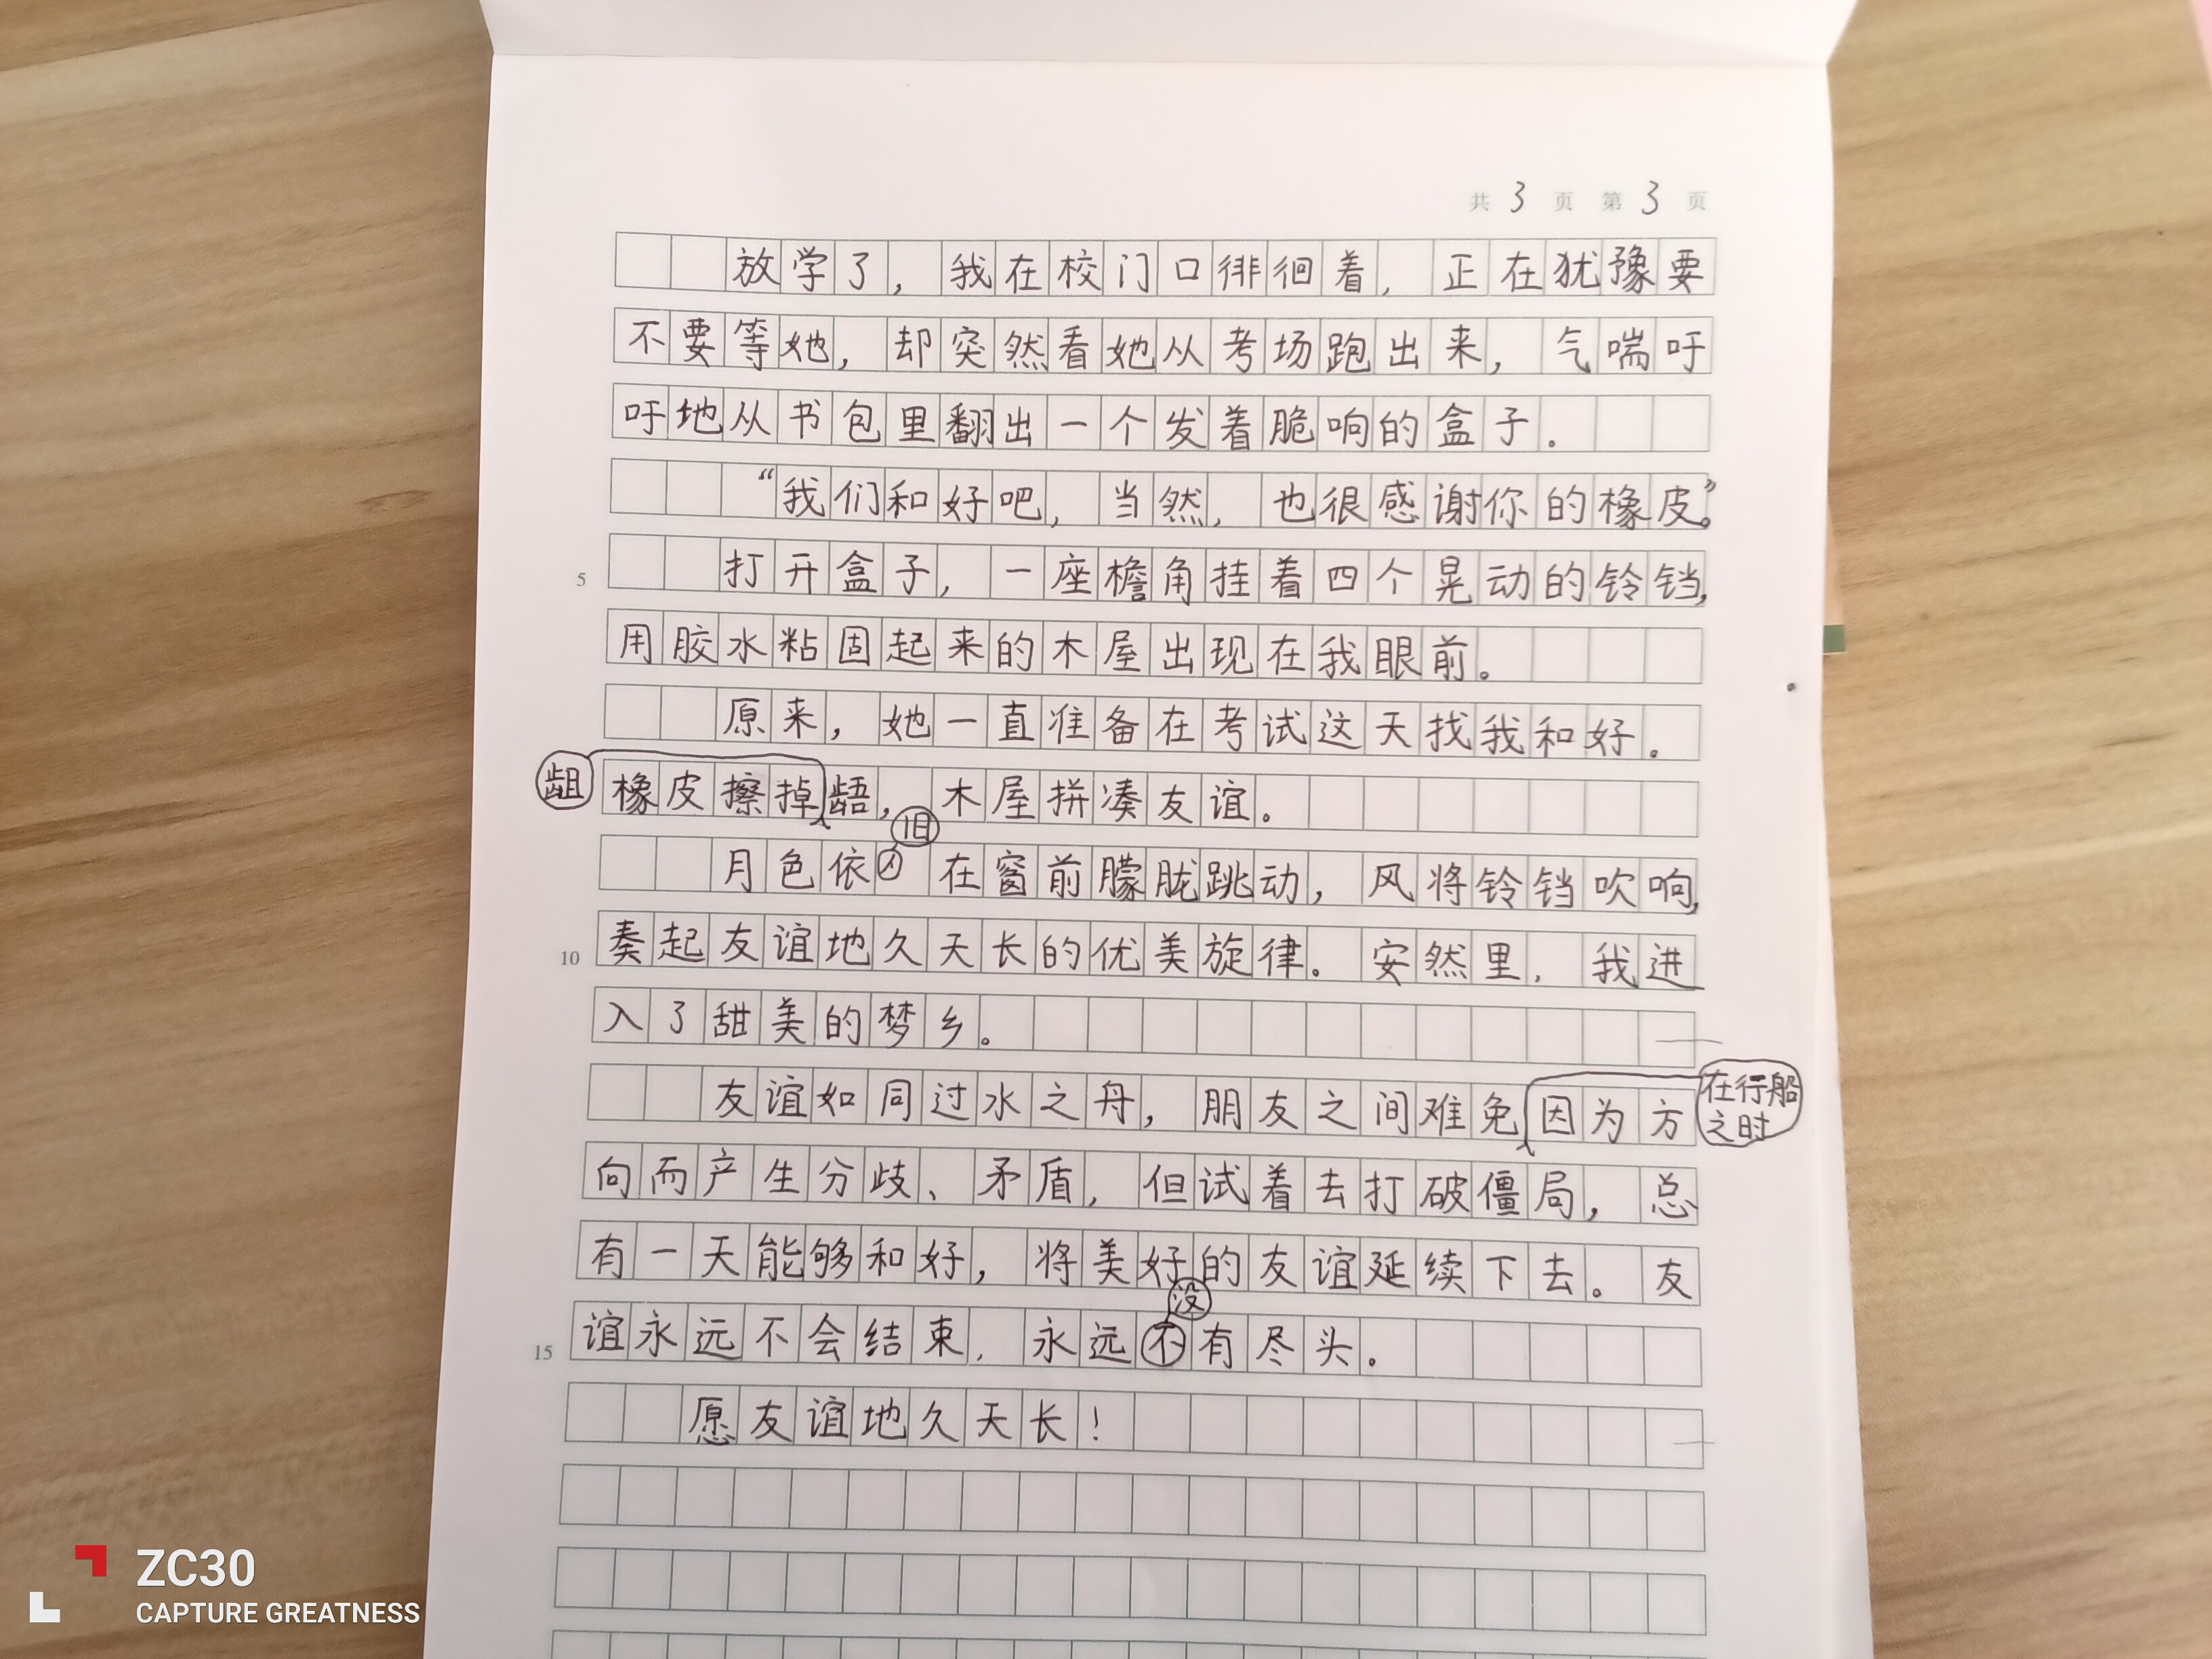 共 3 页 第 3 页
放学了，我在校门口徘徊着，正在犹豫要
不要等她，却突然看她从考场跑出来，气喘吁
吁地从书包里翻出一个发着脆响的盒子。
“我们和好吧，当然，也很感谢你的橡皮。”
5 打开盒子，一座檐角挂着四个晃动的铃铛，
用胶水粘固起来的木屋出现在我眼前。
原来，她一直准备在考试这天找我和好。
橡皮擦掉龃龉，木屋拼凑友谊。
月色依旧在窗前朦胧跳动，风将铃铛吹响，
10 奏起友谊地久天长的优美旋律。安然里，我进
入了甜美的梦乡。
友谊如同过水之舟，朋友之间难免在行船之时因为方
向而产生分歧、矛盾，但试着去打破僵局，总
有一天能够和好，将美好的友谊延续下去。友
15 谊永远不会结束，永远没有尽头。
愿友谊地久天长！
ZC30
CAPTURE GREATNESS